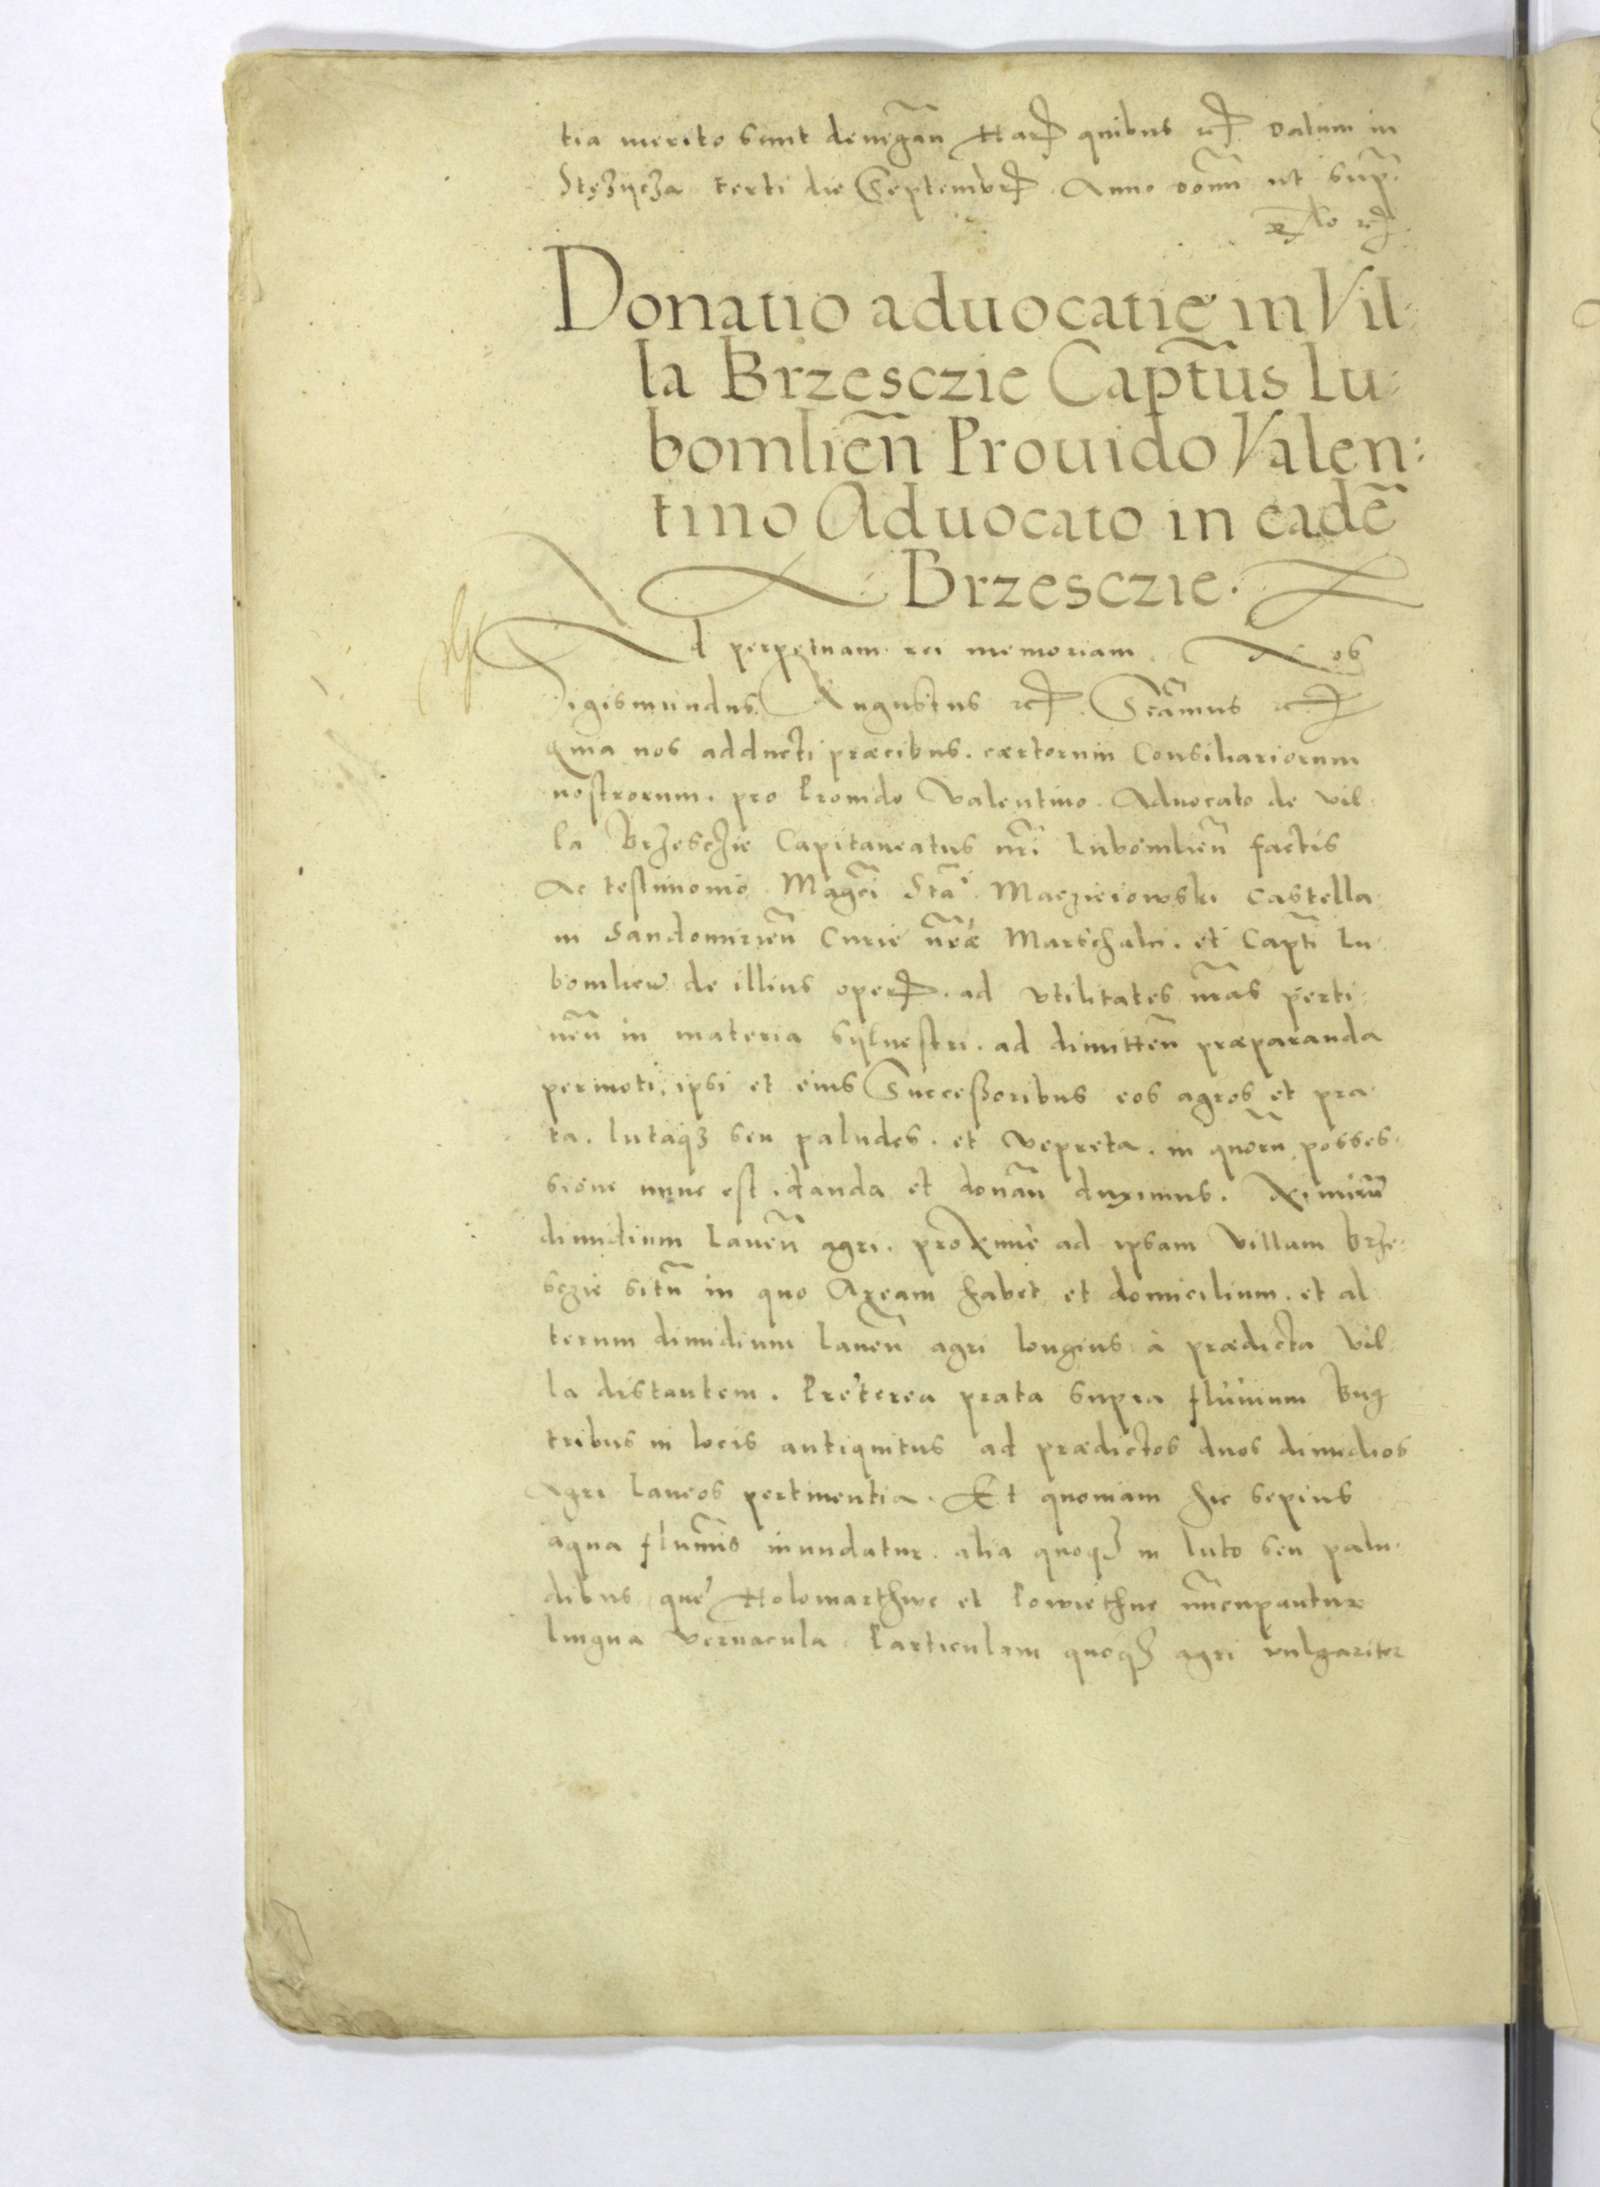 tia merito sunt denegañ Harꝭ quibus ꝛcꝭ Datum in
Stęzycza terti die Septembrꝭ. Anno domī ut supr̄.
Rlo ꝛcꝭ.
Donatio aduocatię in Vil-
la Brzesczie Capt̃us Lu-
bomlień Prouido Valen-
tino Aduocato in eadē
Brzesczie.
Ad perpetuam rei memoriam. Nos
Sigismundus Augustus ꝛcꝭ. Sc̃amus ꝛcꝭ
Quia nos adducti præcibus. cærtorum Consiliariorum
nostrorum. pro Prouido Valentino. Aduocato de vil-
la Brzesczie Capitaneatus nr̃i Lubomlień factis
Ac testimonio. Magc̃i Sta͠i. Maczieiowski Castella-
ni Sandomirień Curię nr̃æ Marschalci. et Capt̃i Lu-
bomlień de illius operꝭ. ad vtilitates nr̃as perti-
neñ in materia syluestri. ad dimitteñ præparanda
permoti, ipsi et eius Successoribus eos agros et pra-
ta. lutaqʒ seu paludes. et vepreta. in quorũ posses-
sione nunc est. danda et donañ duximus. Nimirũ
dimidium Laneũ agri. proxime ad ipsam Villam Brze-
sczie sitũ in quo Aream habet et domicilium. et al
terum dimidium laneũ agri longius à prædicta vil-
la distantem. Pręterea prata supra fluuium Bug
tribus in locis antiquitus ad prædictos duos dimidios
Agri laneos pertinentia. Et quoniam hic sepius
aqua flumīs inundatur. alia quoqʒ in luto seu palu-
dibus quę Holomarthwe et Powiethne nũcupantur
lingua vernacula. Particulam quoqʒ agri vulgariter